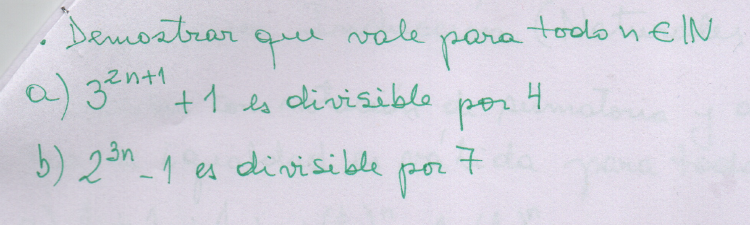 . Demostrar que vale para todo n ∈ ℕ
a) 3²ⁿ⁺¹ + 1 es divisible por 4
b) 2³ⁿ - 1 es divisible por 7